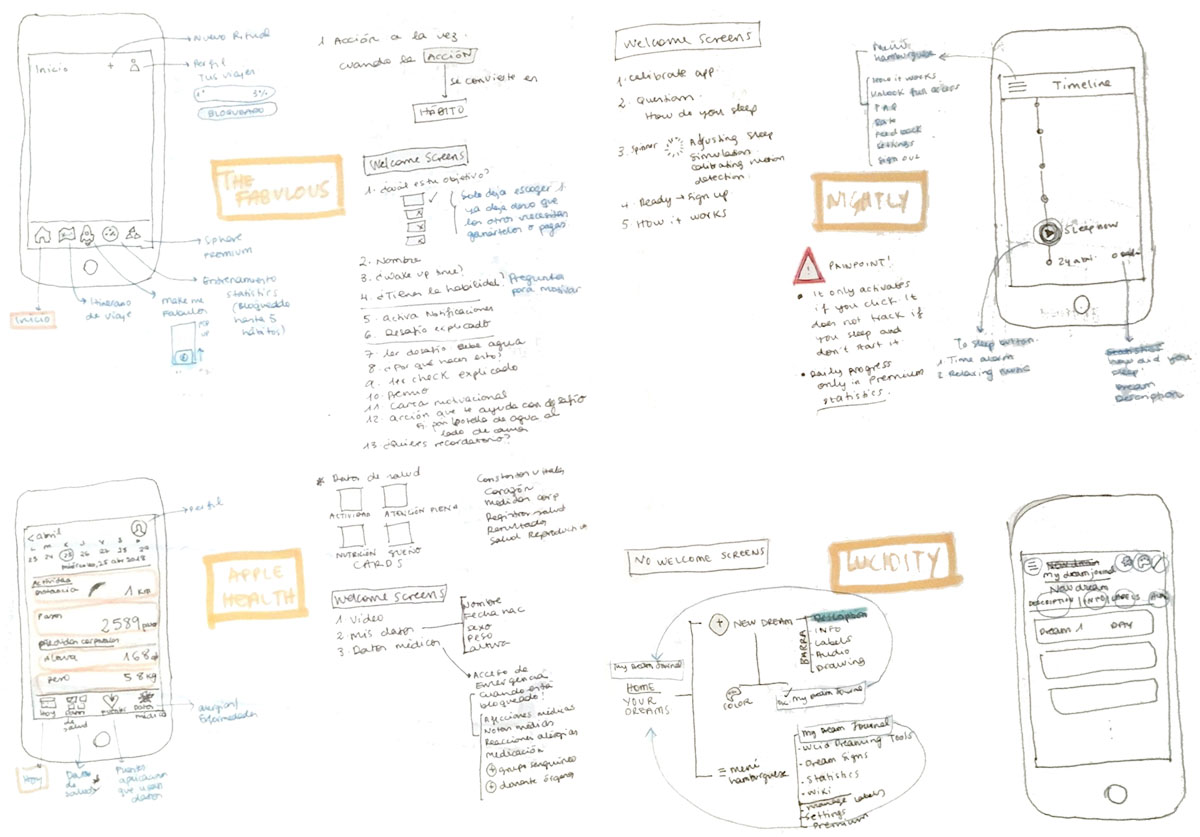 Inicio
+
Nuevo Ritual
Perfil
Tus viajes
3%
BLOQUEADO
Sphere
PREMIUM
Entrenamiento
statistics
(Bloqueado
hasta 5
hábitos)
INICIO
Itinerario
de viaje
Make me
Fabulous
THE
FABULOUS
1 Acción a la vez.
cuando la ACCIÓN
se convierte en
HÁBITO
Welcome Screens
1. ¿Cuál es tu objetivo?
Solo deja escoger 1
ya deja claro que
los otros necesitas
ganártelos o pagas
2. Nombre
3. ¿Wake up time?
4. ¿Tienes la habilidad? Pregunta
para motivar
5. Activa Notificaciones
6. Desafío explicado
7. 1er desafío Bebe agua
8. ¿Por qué haces esto?
9. 1er check explicado
10. Premio
11 Carta motivacional
12 acción que te ayuda con desafío
botella de agua al
lado de cama
13. ¿Quieres recordatorio?
Welcome Screens
1. Calibrate app.
2. Question.
How do you sleep
3. Spinner
Adjusting Sleep
Simulation.
calibrating motion
detection.
4. Ready → Sign up
5. How it works
NIGHTLY
PAINPOINT!
It only activates
if you click it
does not track if
you sleep and
don't start it.
Daily progress
only in Premium
statistics.
Menú
hamburguesa
How it works
Unlock full access
FAQ
Rate
Feedback
Settings
Sign out
Timeline
Sleep now
24 abril
To sleep button.
1. Time alarm
2. Relaxing
Statistics
how and you
sleep
Dream
Description
< abril
L M X J V S D
23 24 25 26 27 28 29
miércoles, 25 abr 2018
Actividad
Distancia
1 KM
Pasos
2589 pasos
Medidas corporales
Altura
168
Peso
58 kg
Hoy
Datos
de
salud
Datos
médicos
Perfil
alergias/
Enfermedades
Hoy
Datos
de
salud
Fuentes
aplicación
que usan
datos
APPLE
HEALTH
* Datos de salud
ACTIVIDAD
ATENCIÓN PLENA
NUTRICIÓN
SUEÑO
CARDS
Constantes vitales
Corazón
Medidas corp
Registros salud
Resultados
Salud Reproductiva
Welcome Screens
1. Video
2. Mis datos
3. Datos médicos
Nombre
Fecha nac
Sexo
Peso
altura
* Acceso de
Emergencia
Cuando está
bloqueado!
Afecciones médicas
Notas médicas
Reacciones alergias
Medicación
+ grupo sanguíneo
+ donante órganos
NO WELCOME SCREENS
LUCIDITY
My Dream Journal
HOME
YOUR
DREAMS
+ NEW DREAM
BARRA
Description
INFO
Labels
Audio
Drawing
COLOR
My Dream Journal
menú
hamburguesa
My Dream Journal
- Lucid Dreaming Tools
- Dream Signs
- Statistics
- Wiki
- Manage Labels
- Settings
- Premium
New dream
My dream journal
New dream
DESCRIPTION | INFO | LABELS
Dream 1 DAY